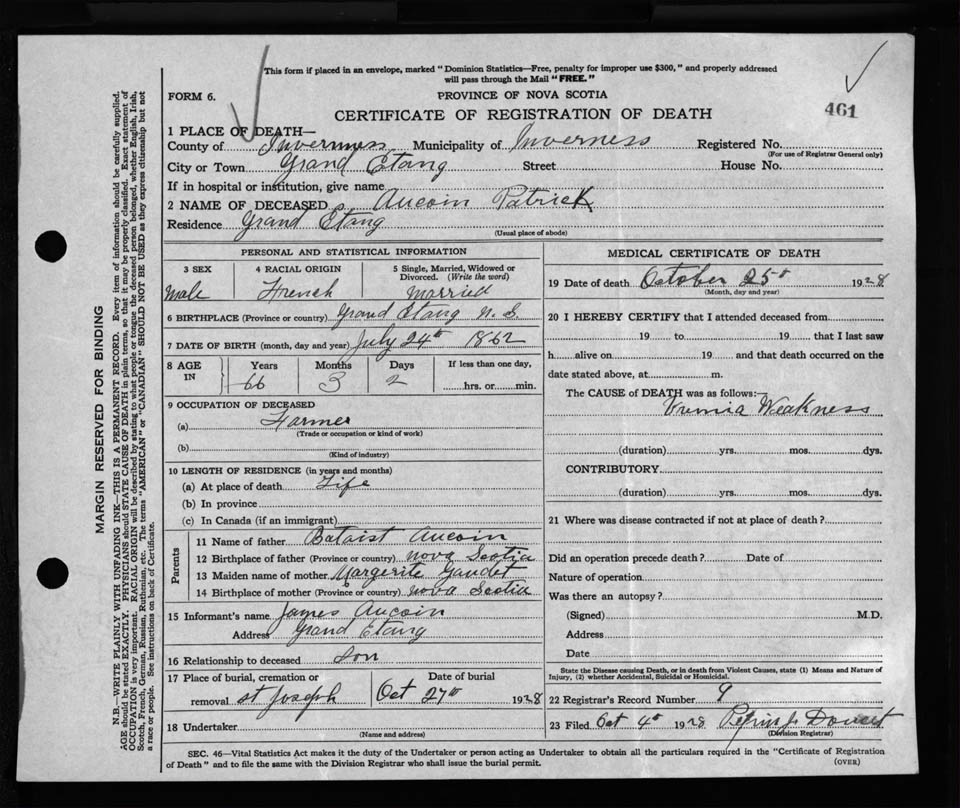 This form if placed in an envelope, marked "Dominion Statistics—Free, penalty for improper use $300," and properly addressed
will pass through the Mail "FREE."
FORM 6.
PROVINCE OF NOVA SCOTIA
461
CERTIFICATE OF REGISTRATION OF DEATH
1 PLACE OF DEATH—
County of Inverness Municipality of Inverness Registered No.
(For use of Registrar General only)
City or Town Grand Etang Street House No.
If in hospital or institution, give name
2 NAME OF DECEASED Aucoin Patrick
Residence Grand Etang
(Usual place of abode)
PERSONAL AND STATISTICAL INFORMATION
3 SEX 4 RACIAL ORIGIN 5 Single, Married, Widowed or
Divorced. (Write the word)
Male French Married
6 BIRTHPLACE (Province or country) Grand Etang N. S.
7 DATE OF BIRTH (month, day and year) July 24th 1862
8 AGE IN Years Months Days If less than one day,
66 3 2 hrs. or min.
9 OCCUPATION OF DECEASED
(a) Farmer
(Trade or occupation or kind of work)
(b)
(Kind of industry)
10 LENGTH OF RESIDENCE (in years and months)
(a) At place of death Life
(b) In province
(c) In Canada (if an immigrant)
Parents
11 Name of father Bataist Aucoin
12 Birthplace of father (Province or country) Nova Scotia
13 Maiden name of mother Margerite Gaudet
14 Birthplace of mother (Province or country) Nova Scotia
15 Informant's name James Aucoin
Address Grand Etang
16 Relationship to deceased Son
17 Place of burial, cremation or Date of burial
removal St Joseph Oct 27th 1928
18 Undertaker
(Name and address)
MEDICAL CERTIFICATE OF DEATH
19 Date of death October 25th 1928
(Month, day and year)
20 I HEREBY CERTIFY that I attended deceased from
19 to 19 that I last saw
h alive on 19 and that death occurred on the
date stated above, at m.
The CAUSE OF DEATH was as follows:—
Weakness
(duration) yrs. mos. dys.
CONTRIBUTORY
(duration) yrs. mos. dys.
21 Where was disease contracted if not at place of death?
Did an operation precede death? Date of
Nature of operation
Was there an autopsy?
(Signed) M.D.
Address
Date
State the Disease causing Death, or in death from Violent Causes, state (1) Means and Nature of
Injury, (2) whether Accidental, Suicidal or Homicidal.
22 Registrar's Record Number 9
23 Filed Oct 4th 1928
(Division Registrar)
SEC. 46—Vital Statistics Act makes it the duty of the Undertaker or person acting as Undertaker to obtain all the particulars required in the "Certificate of Registration
of Death" and to file the same with the Division Registrar who shall issue the burial permit.
(OVER)
MARGIN RESERVED FOR BINDING
N.B.—WRITE PLAINLY WITH UNFADING INK—THIS IS A PERMANENT RECORD. Every item of information should be carefully supplied.
AGE should be stated EXACTLY. PHYSICIANS should STATE CAUSE OF DEATH in plain terms, so that it may be properly classified. Exact statement of
OCCUPATION is very important. RACIAL ORIGIN will be described by stating to what people or tongue the deceased person belonged, whether English, Irish,
Scotch, French, German, Russian, Ruthenian, etc. The terms "AMERICAN" or "CANADIAN" SHOULD NOT BE USED as they express citizenship but not
a race or people. See instructions on back of Certificate.